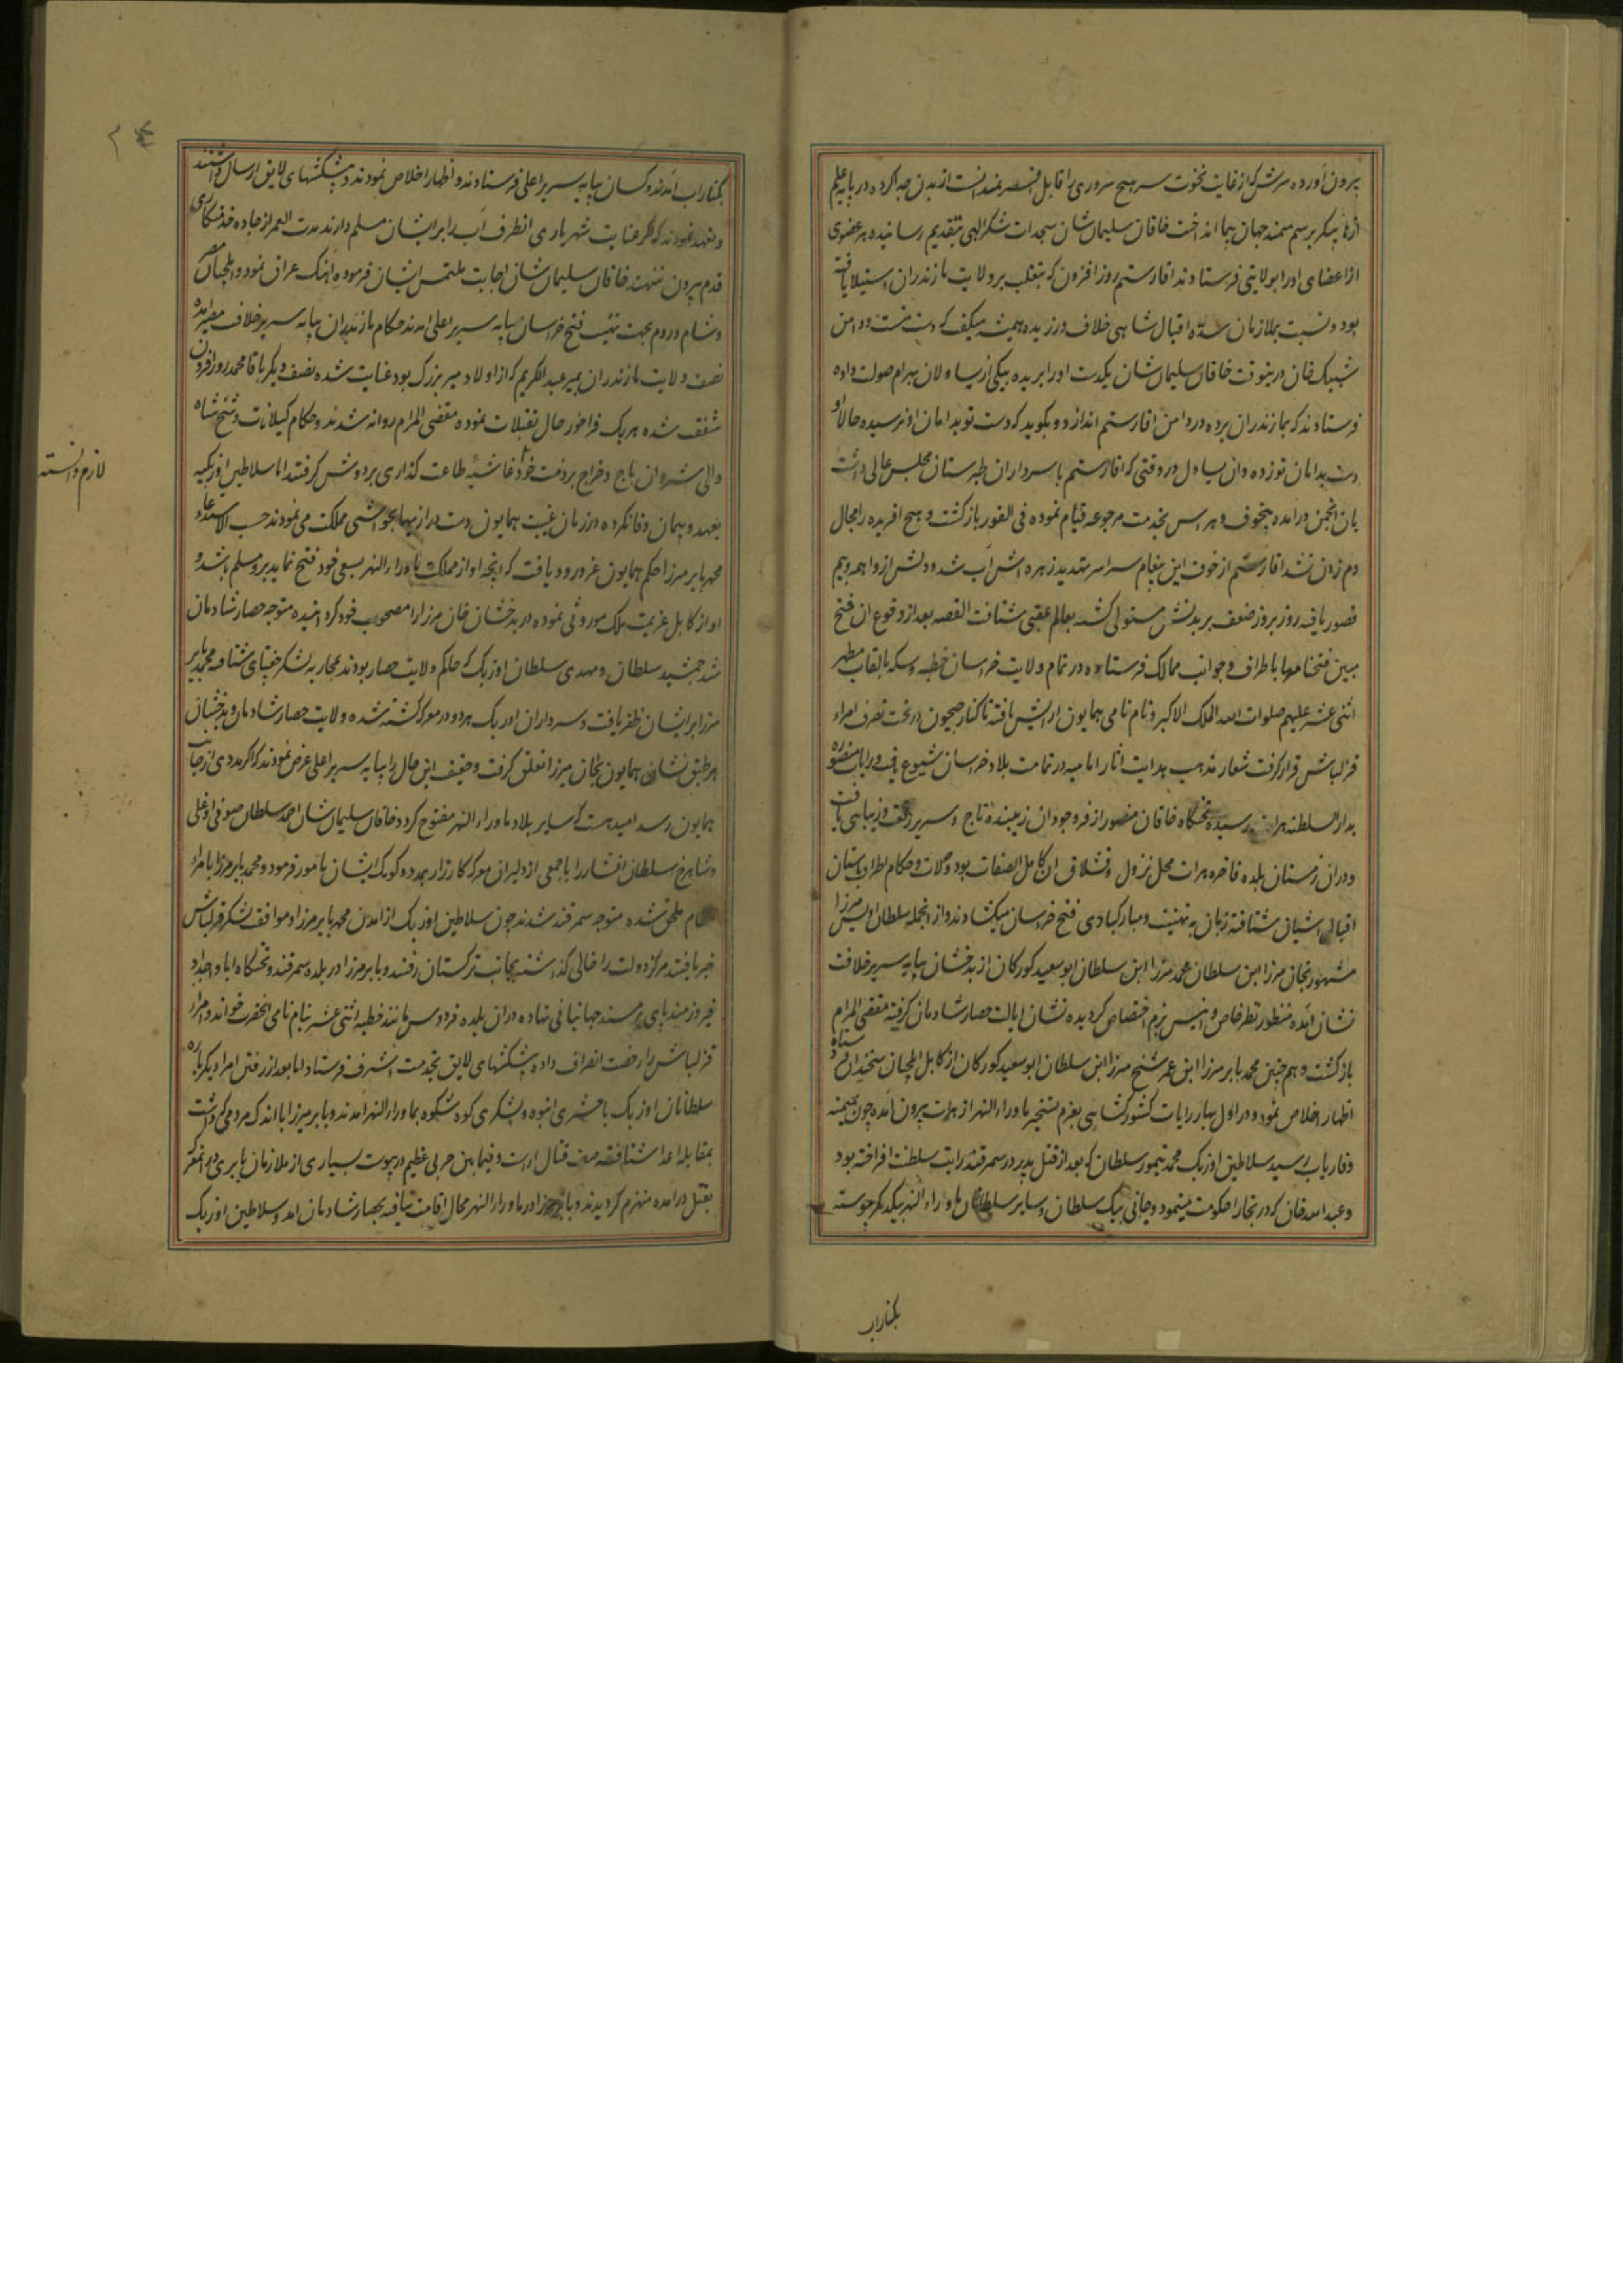 بیرون آورده سرش که از غایت نخوت سر هیچ سروری را قابل افسر نمیدانست از بدن جدا کرده در پای علم
اژدها پیکر برسم سمند جهان پیما انداخت خاقان سلیمان شان سجدات شکر الهی بتقدیم رسانیده هر عضوی
از اعضای او را بولایتی فرستادند اقا رستم روز افزون که بتغلب بر ولایت مازندران استیلا یافته
بود و نسبت بملازمان سده اقبال شاهی خلاف ورزیده همیشه میگفت که دست منست و دامن
شیبک خان درینوقت خاقان سلیمان شان یکدست او را بریده بیکی از یساولان بهرام صولت داده
فرستادند که بمازندران برده در دامن اقا رستم اندازد و بگوید که دست تو بدامان او نرسیده حالا او
دست بدامان تو زده و ان یساول در وقتی که اقا رستم با سرداران طبرستان مجلس عالی داشت
بان انجمن درامده بیخوف و هراس بخدمت مرجوعه قیام نموده فی الفور بازگشت و هیچ افریده را مجال
دم زدن نشد اقا رستم از خوف این پیغام سراسر تهدید زهره اش آب شد و دلش از واهمه و بیم
قصور یافته روز بروز ضعف بر بدنش مستولی گشته بعالم عقبی شتافت القصه بعد از وقوع ان فتح
مبین فتحنامها باطراف و جوانب ممالک فرستاده در تمام ولایت خراسان خطبه و سکه بالقاب مطهر
اثنی عشر علیهم صلوات الله الملک الاکبر و نام نامی همایون ارایش یافته تا کنار جیحون در تحت تصرف امراء
قزلباش قرار گرفت شعار مذهب هدایت اثار امامیه در تمامت بلاد خراسان شیوع یافت و رایات منصوره
بدار السلطنه هرات رسیده تختگاه خاقان منصور از فر وجود ان زیبنده تاج و سریر رونق و زیبایی یافت
و در ان زمستان بلده فاخره هرات محل نزول و قشلاق ان کامل الصفات بود و ولات و حکام اطراف باستان
اقبال اشیان شتافته زبان به تهنیت و مبارکبادی فتح خراسان میگشادند و از انجمله سلطان اویس میرزا
مشهور بخان میرزا ابن سلطان محمود میرزا ابن سلطان ابو سعید کورکان از بدخشان بپایه سریر خلافت
نشان امده منظور نظر خاص و انیس بزم اختصاص گردیده نشان ایالت حصار شادمان گرفته مقضی المرام
بازگشت و هم چنین محمد بابر میرزا ابن عمر شیخ میرزا ابن سلطان ابو سعید کورکان از کابل ایلچیان سخندان فرستاده
اظهار اخلاص نمود و در اول بهار رایات کشورگشایی بعزم تسخیر ماوراء النهر از هرات بیرون امده چون بمیمنه
و فاریاب رسید سلاطین اوزبک محمد تیمور سلطان که بعد از قتل پدر در سمرقند رایت سلطنت افراخته بود
و عبد الله خان که در بخارا حکومت مینمود و جانی بیک سلطان و سایر سلطانان ماوراء النهر بیکدیگر پیوسته
بکنار اب
بکنار اب امدند و کسان بپایه سریر اعلی فرستادند و اظهار اخلاص نمودند و پیشکشهای لایق ارسال داشتند
و تعهد نمودند که اگر عنایت شهریاری انطرف آب را بر ایشان مسلم دارند مدت العمر از جاده خدمتکاری
قدم بیرون ننهند خاقان سلیمان شان اجابت ملتمس ایشان فرموده آهنک عراق نمود و ایلچیان مصر
و شام و روم بجهت تهنیت فتح خراسان بپایه سریر اعلی امدند حکام مازندران بپایه سریر خلافت مصیر امده
نصف ولایت مازندران بمیر عبد الکریم که از اولاد میر بزرگ بود عنایت شده نصف دیگر باقا محمد روز افزون
شفقت شده هر یک فراخور حال تقبلات نموده مقضی المرام روانه شدند و حکام کیلانات و شیخ شاه
والی شیروان باج و خراج بر ذمت خود غاشیه طاعت گذاری بر دوش گرفتند اما سلاطین اوزبکیه
بعهد و پیمان وفا نکرده در زمان غیبت همایون دست درازیها بحواشی مملکت می نمودند حسب الاستدعاء
محمد بابر میرزا حکم همایون عز ورود یافت که آنچه او از مملکت ماوراء النهر بسعی خود فتح نماید برو مسلم باشد و
او از کابل عزیمت ملک موروثی نموده در بدخشان خان میرزا را مصحوب خود گردانیده متوجه حصار شادمان
شد جمشید سلطان و مهدی سلطان اوزبک که حاکم ولایت حصار بودند بمحاربه لشکر جغتای شتافته محمد بابر
میرزا بر ایشان ظفر یافت و سرداران اوزبک هر دو در معرکه کشته شده ولایت حصار شادمان و بدخشان
بر طبق نشان همایون بخان میرزا تعلق گرفت و حقیقت این حال را بپایه سریر اعلی عرض نمودند که اگر مددی از جانب
همایون رسد امید هست که سایر بلاد ماوراء النهر مفتوح گردد خاقان سلیمان شان احمد سلطان صوفی اوغلی
و شاهرخ سلطان افشار را با جمعی از دلیران معرکه کارزار بمدد و کومک ایشان مامور فرمود و محمد بابر میرزا بامراء
ملحق شده متوجه سمرقند شدند چون سلاطین اوزبک از امدن محمد بابر میرزا و موافقت لشکر قزلباش
خبر یافتند مرکز دولت را خالی گذاشته بجانب ترکستان رفتند و بابر میرزا در بلده سمرقند و تختگاه ابا و اجداد
فیروزمند پای بر مسند جهانبانی نهاده در ان بلده فردوس مانند خطبه اثنی عشر بنام نامی انحضرت خواند و امراء
قزلباش را رخصت انصراف داده پیشکشهای لایق بخدمت اشرف فرستاد اما بعد از رفتن امرا دیگر باره
سلطانان اوزبک با حشری انبوه و لشکری کوه شکوه بماوراء النهر آمدند و بابر میرزا با اندک مردمی که داشت
بمقابله اعدا شتافته صف قتال اراست و فیمابین حربی عظیم در پیوست بسیاری از ملازمان بابری در ان معرکه
بقتل درامده منهزم گردیدند و بابر میرزا در ماوراء النهر مجال اقامت نیافته بحصار شادمان امد و سلاطین اوزبک
لازم دانسته